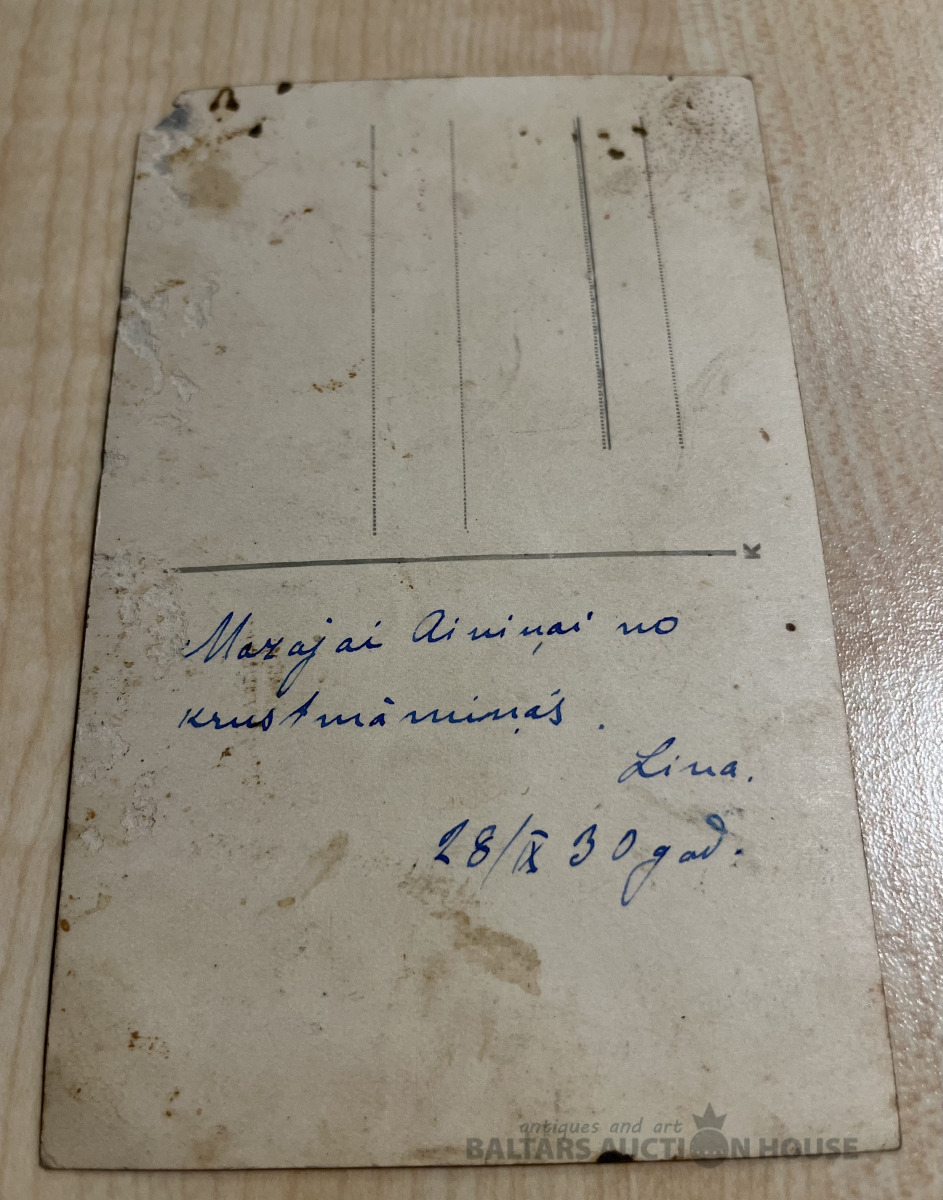 K
Mazajai Aiviņai no
krustmāmiņas.
Lina.
28/IX 30 gad.
antiques and art
BALTARS AUCTION HOUSE